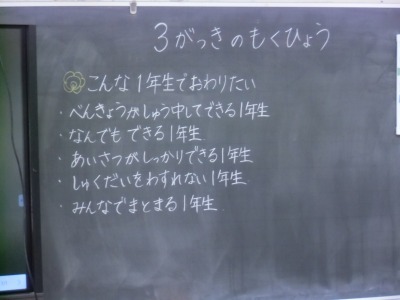 3がっきのもくひょう
こんな1年生でおわりたい
・べんきょうがしゅう中してできる1年生
・なんでもできる1年生
・あいさつがしっかりできる1年生
・しゅくだいをわすれない1年生
・みんなでまとまる1年生